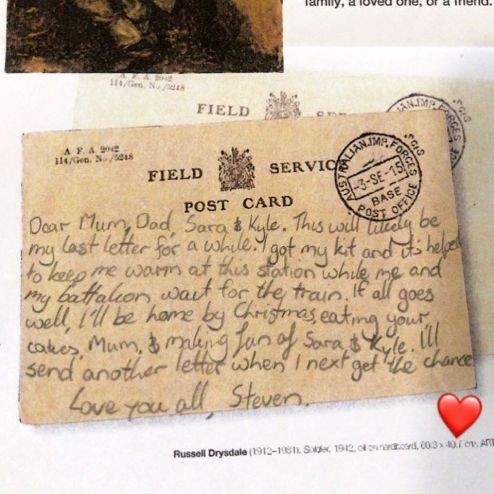 family, a loved one, or a friend.
A F A 2042
114/Gen. No/5248
FIELD
A F A 2042
114/Gen. No/5248
FIELD SERVICE
POST CARD
AUSTRALIAN IMP. FORCES
3-SE-15
BASE
POST OFFICE
Dear Mum, Dad, Sara & Kyle. This will likely be
my last letter for a while. I got my kit and it's helped
to keep me warm at this station while me and
my battalion wait for the train. If all goes
well, I'll be home by Christmas eating your
cakes, Mum, & making fun of Sara & Kyle. I'll
send another letter when I next get the chance
Love you all, Steven.
Russell Drysdale (1912–1981). Soldier, 1942, oil on hardboard, 60.3 x 40.7 cm.